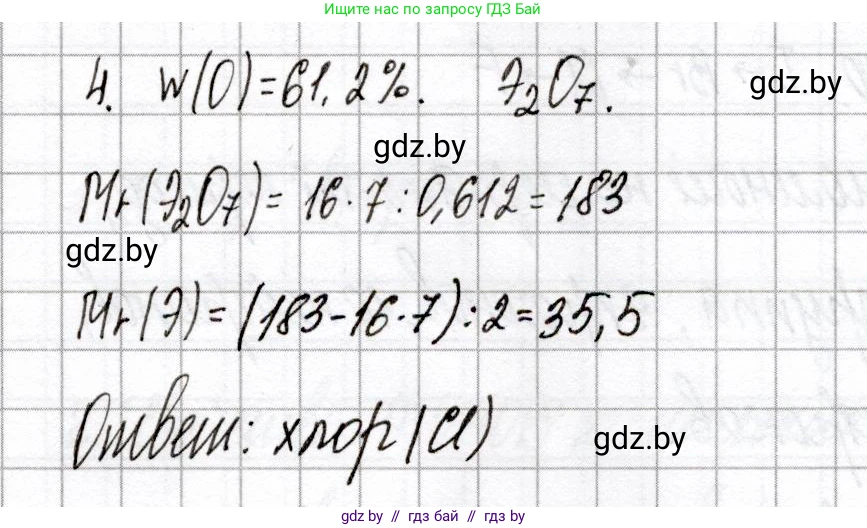 Ищите нас по запросу ГДЗ Бай
4. W(O)=61,2%. Э₂O₇.
gdz.by
gdz.by
Mr(Э₂O₇)= 16·7:0,612=183
gdz.by
Mr(Э)=(183-16·7):2=35,5
Ответ: хлор (Cl)
gdz.by
gdz.by // гдз бай // гдз by